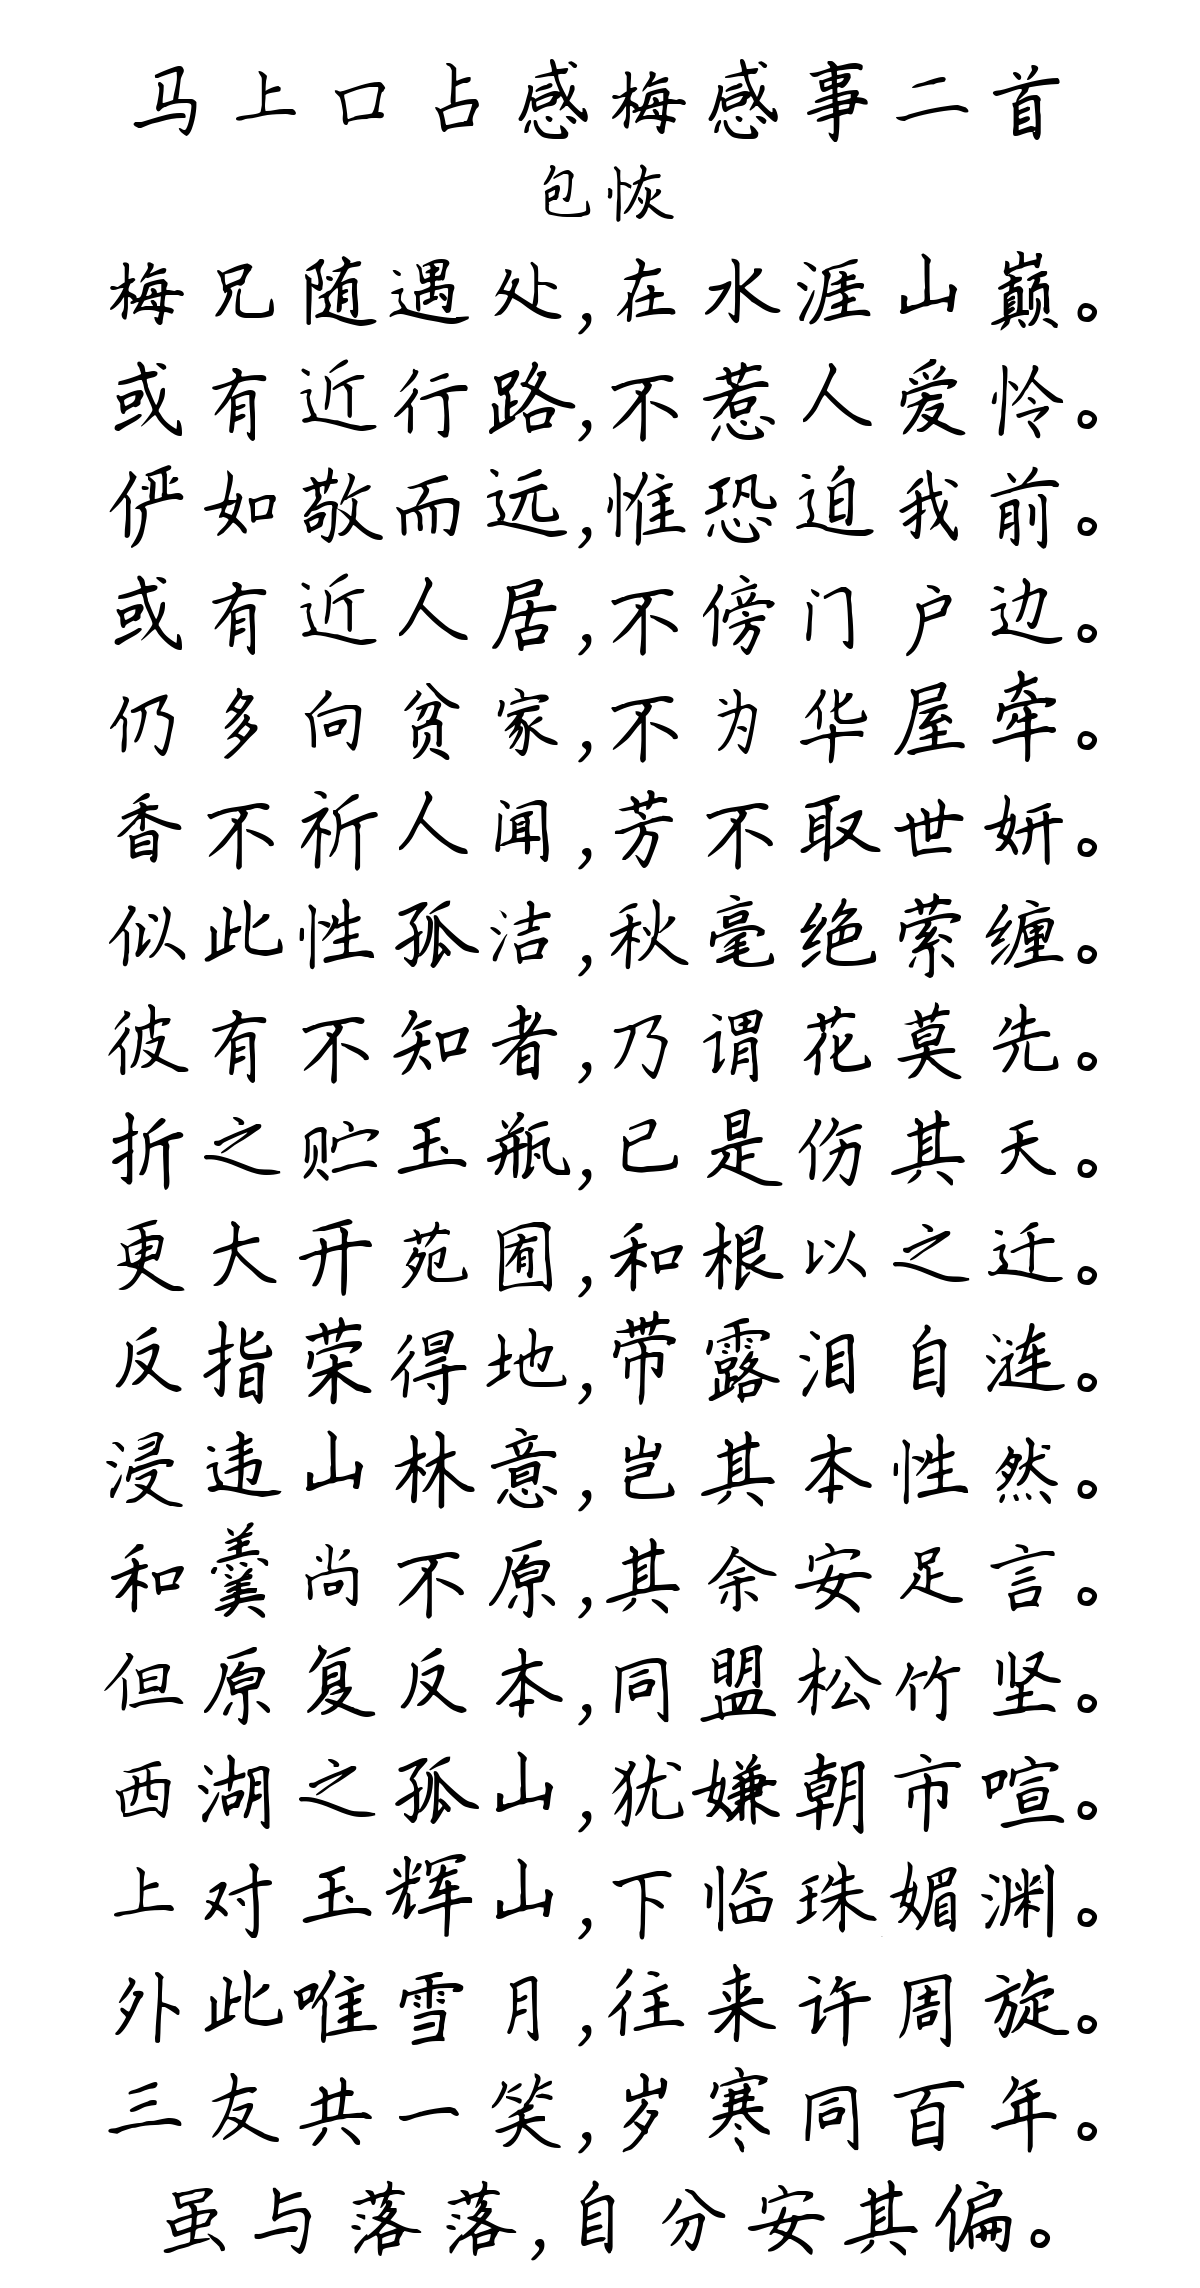 马上口占感梅感事二首
包恢
梅兄随遇处,在水涯山巅。
或有近行路,不惹人爱怜。
俨如敬而远,惟恐迫我前。
或有近人居,不傍门户边。
仍多向贫家,不为华屋牵。
香不祈人闻,芳不取世妍。
似此性孤洁,秋毫绝萦缠。
彼有不知者,乃谓花莫先。
折之贮玉瓶,已是伤其天。
更大开苑囿,和根以之迁。
反指荣得地,带露泪自涟。
浸违山林意,岂其本性然。
和羹尚不原,其余安足言。
但原复反本,同盟松竹坚。
西湖之孤山,犹嫌朝市喧。
上对玉辉山,下临珠媚渊。
外此唯雪月,往来许周旋。
三友共一笑,岁寒同百年。
虽与落落,自分安其偏。